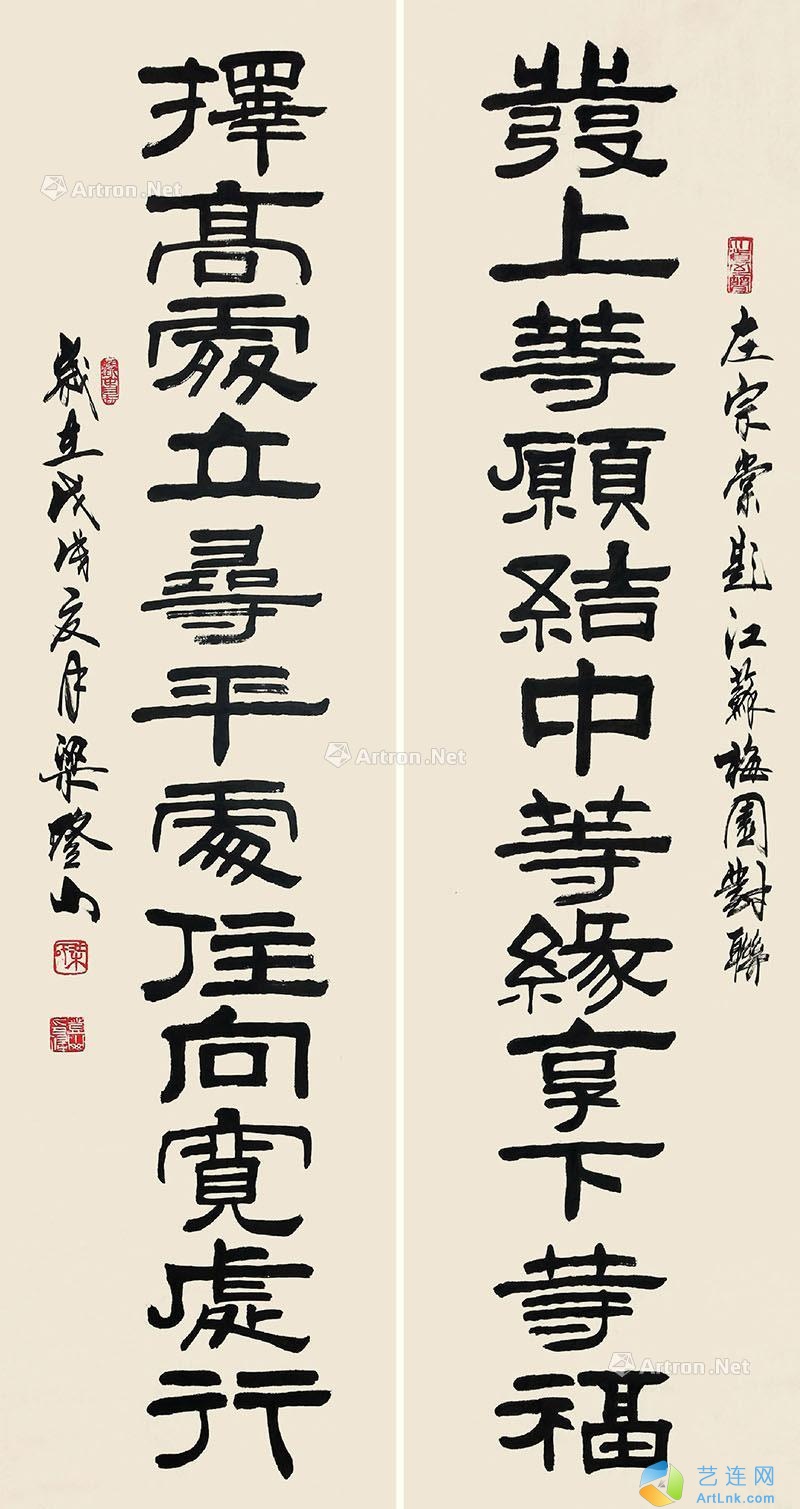 左宗棠題江蘇梅園對聯
發上等願結中等緣享下等福
擇高處立尋平處住向寬處行
歲在戊戌夏月梁燈山
Artron.Net
Artron.Net
Artron.Net
艺连网
ArtLnk.com